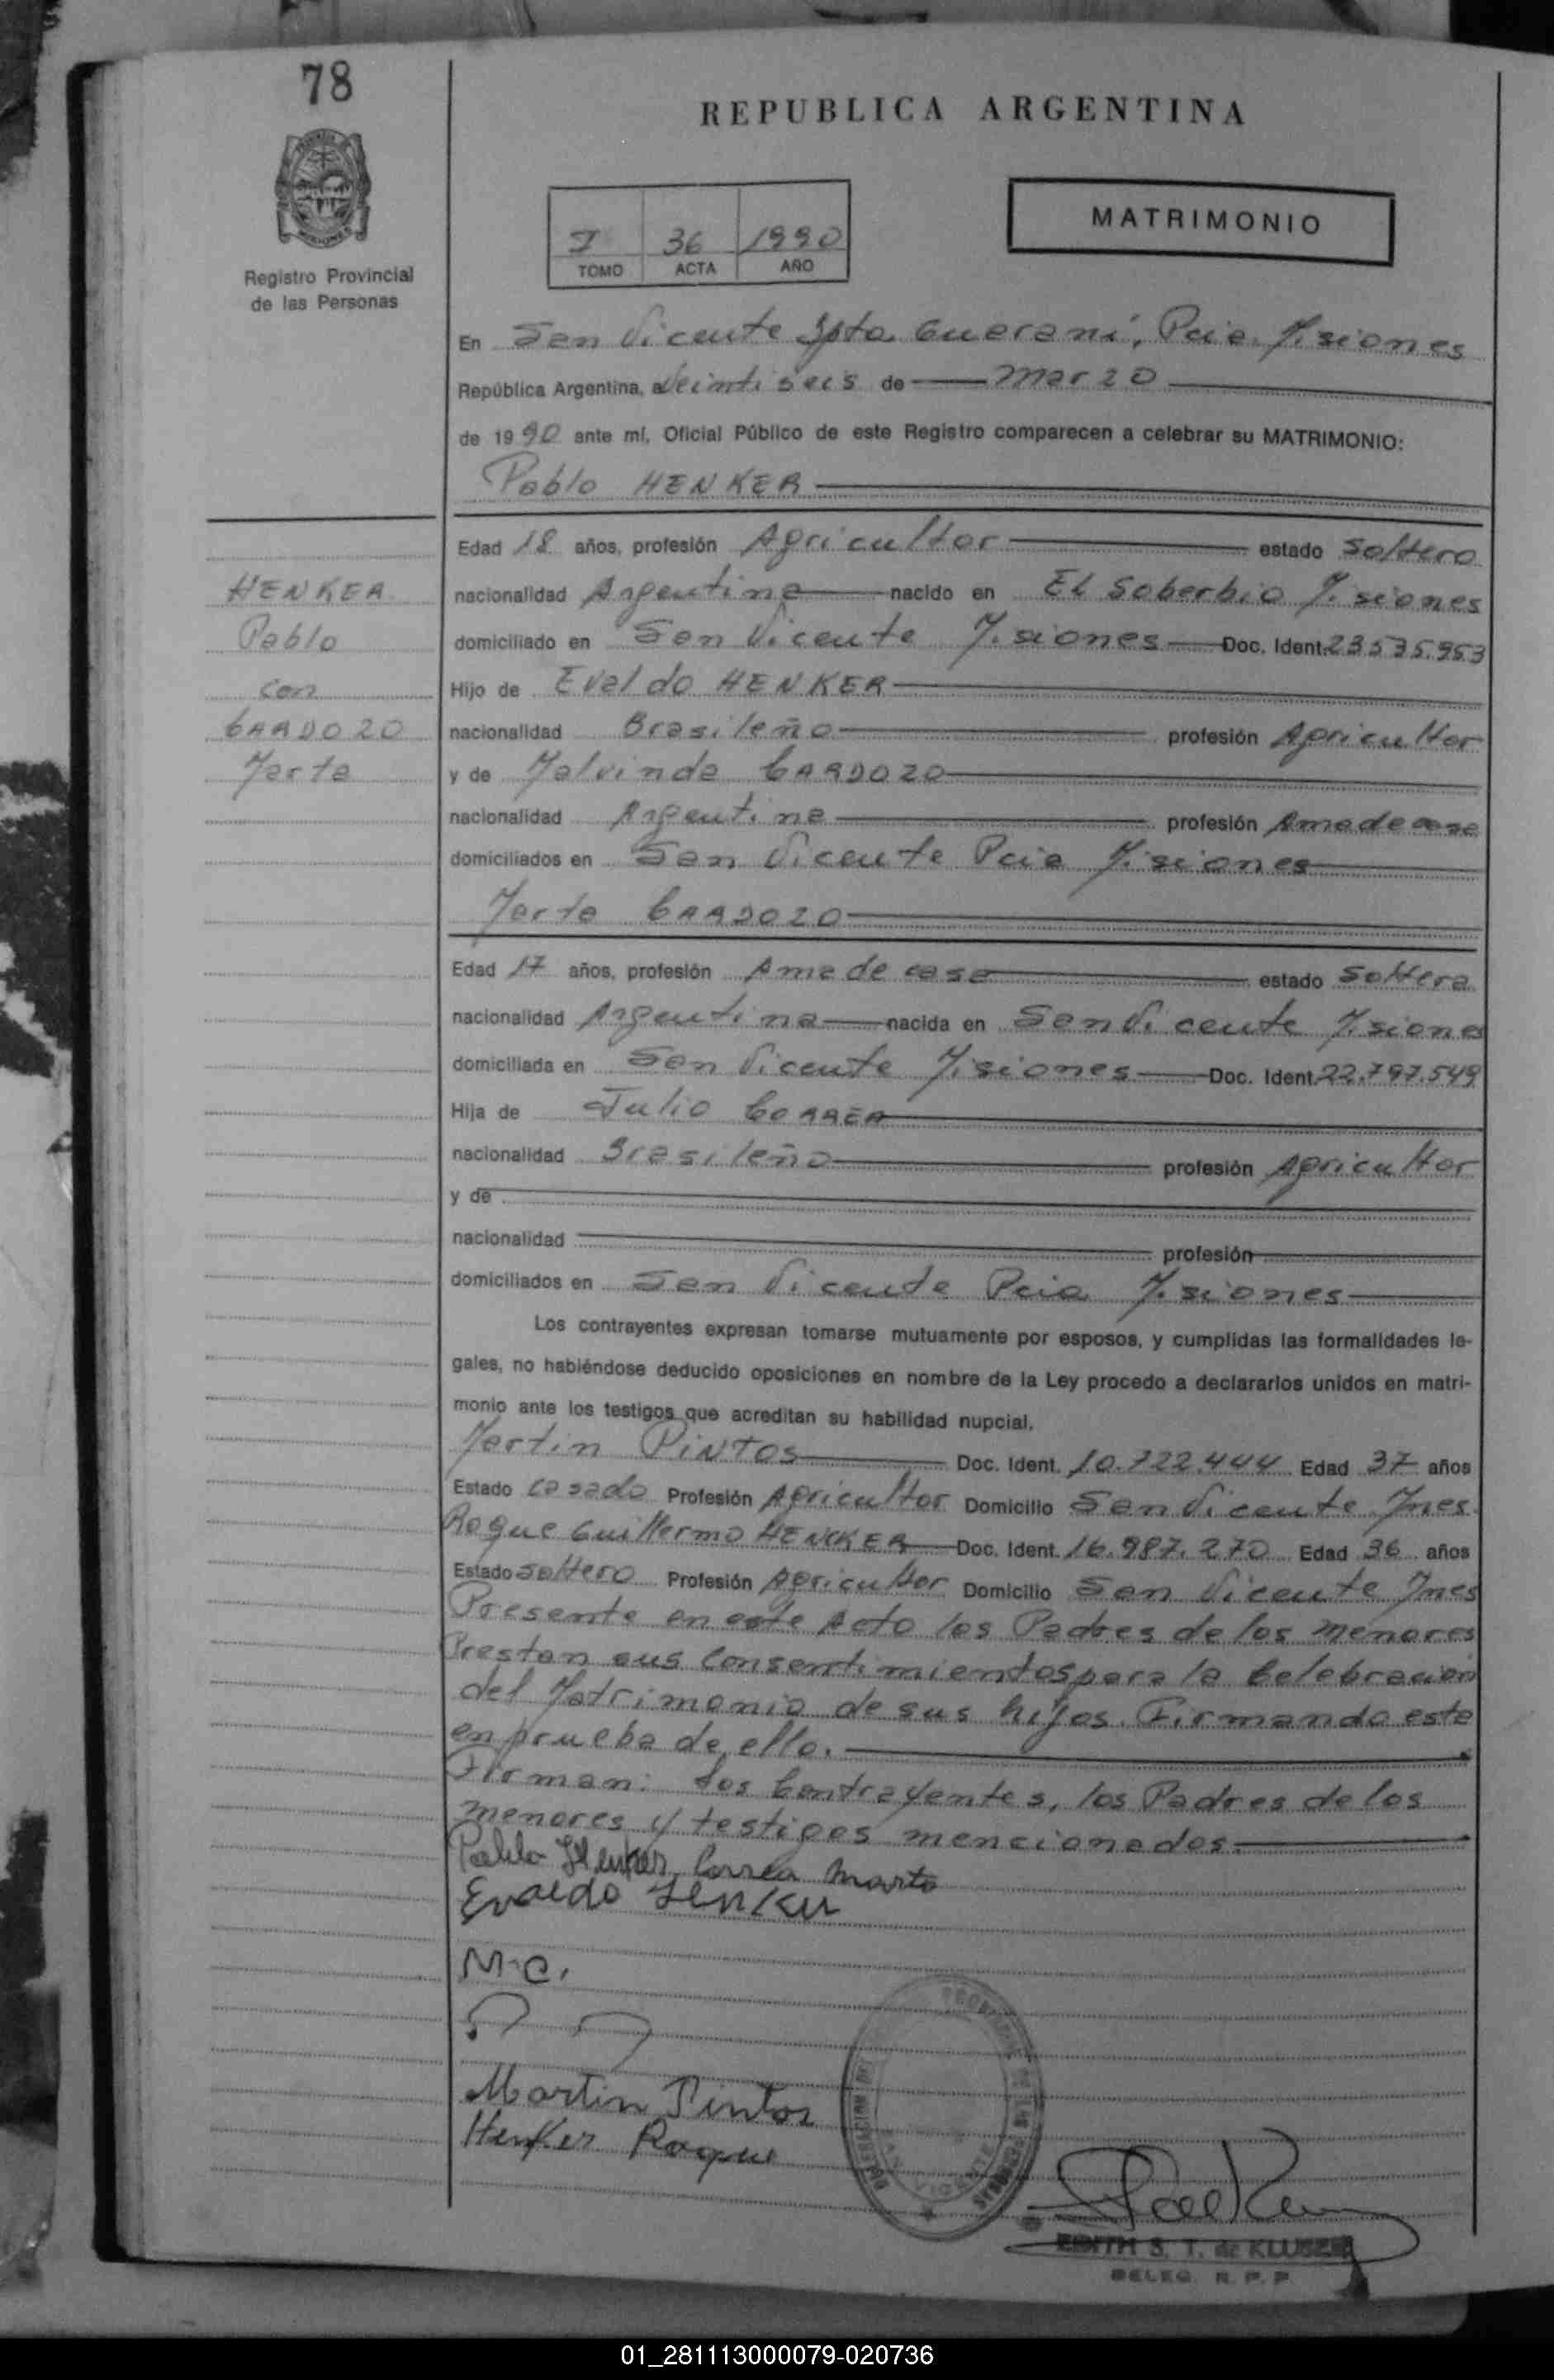 78
REPUBLICA ARGENTINA
MATRIMONIO
I 36 1990
TOMO ACTA AÑO
Registro Provincial
de las Personas
En San Vicente Dpto. Guarani, Pcia. Misiones
República Argentina, a Veintiseis de Marzo
de 1990 ante mí, Oficial Público de este Registro comparecen a celebrar su MATRIMONIO:
Pablo HENKER
HENKER
Pablo
con
CARDOZO
Marta
Edad 18 años, profesión Agricultor estado Soltero
nacionalidad Argentina nacido en El Soberbio Misiones
domiciliado en San Vicente Misiones Doc. Ident. 23535.953
Hijo de Evaldo HENKER
nacionalidad Brasileño profesión Agricultor
y de Malvinda CARDOZO
nacionalidad Argentina profesión Ama de casa
domiciliados en San Vicente Pcia Misiones
Marta CARDOZO
Edad 17 años, profesión Ama de casa estado Soltera
nacionalidad Argentina nacida en San Vicente Misiones
domiciliada en San Vicente Misiones Doc. Ident. 22.797.549
Hija de Julio CORREA
nacionalidad Brasileño profesión Agricultor
y de
nacionalidad profesión
domiciliados en San Vicente Pcia Misiones
Los contrayentes expresan tomarse mutuamente por esposos, y cumplidas las formalidades le-
gales, no habiéndose deducido oposiciones en nombre de la Ley procedo a declararlos unidos en matri-
monio ante los testigos que acreditan su habilidad nupcial.
Martin PINTOS Doc. Ident. 10.722.444 Edad 37 años
Estado Casado Profesión Agricultor Domicilio San Vicente Mnes.
Roque Guillermo HENCKER Doc. Ident. 16.987.270 Edad 36 años
Estado Soltero Profesión Agricultor Domicilio San Vicente Mnes
Presente en este Acto los Padres de los menores
Prestan sus Consentimientos para la Celebracion
del Matrimonio de sus hijos. Firmando este
en prueba de ello.
Firman: Los Contrayentes, los Padres de los
menores y testigos mencionados.
Pablo Henker Correa Marta
Evaldo Henker
M.C.
Martin Pintos
Henker Roque
SAN VICENTE
EDITH S. T. de KLUSEN
DELEG. R. P. P
01_281113000079-020736